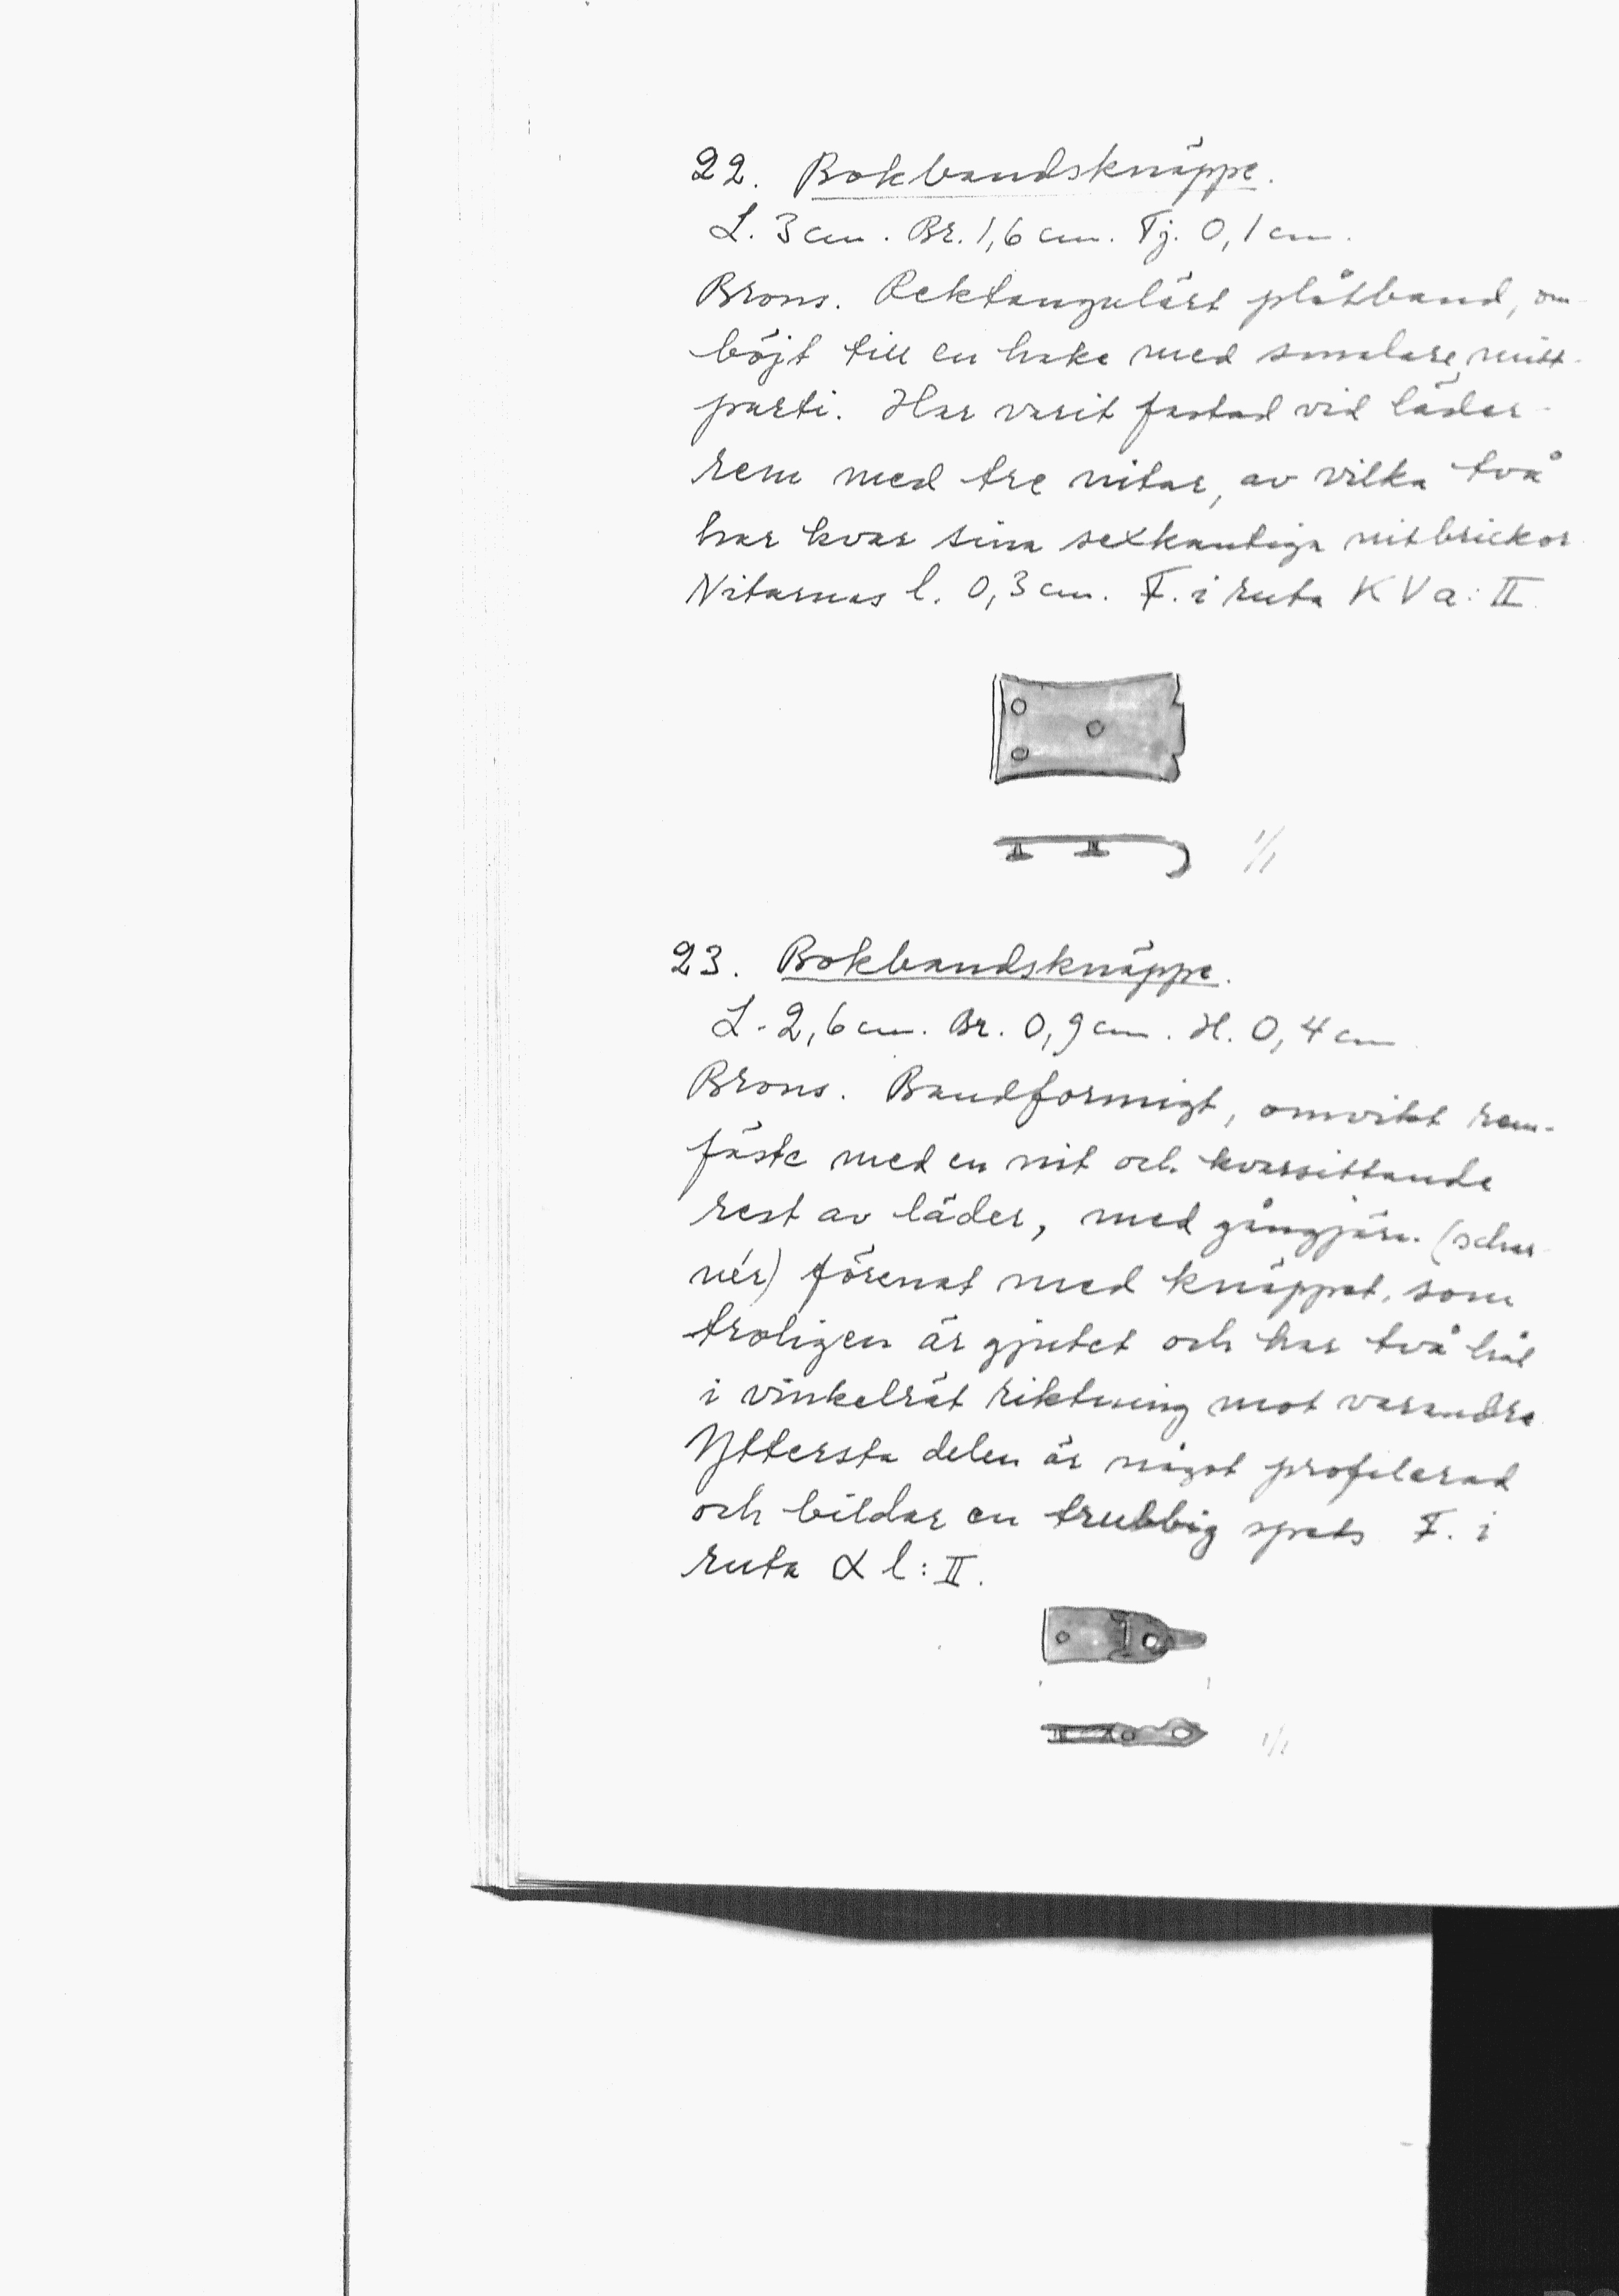 22. Bokbandsknäppe.
L. 3 cm. Br. 1,6 cm. Tj. 0,1 cm.
Brons. Rektangulärt plåtband, om-
böjt till en hake med smalare mitt-
parti. Har varit fastad vid läder-
rem med tre nitar, av vilka två
har kvar sina sexkantiga nitbrickor
Nitarnas l. 0,3 cm. F. i ruta K V a: II
1/1
23. Bokbandsknäppe.
L. 2,6 cm. Br. 0,9 cm. H. 0,4 cm
Brons. Bandformigt, omvikt rem-
fäste med en nit och kvarsittande
rest av läder, med gångjärn (schar
nér) förenat med knäppet, som
troligen är gjutet och har två hål
i vinkelrät riktning mot varandra
Yttersta delen är något profilerad
och bildar en trubbig spets F. i
ruta α l: II.
1/1